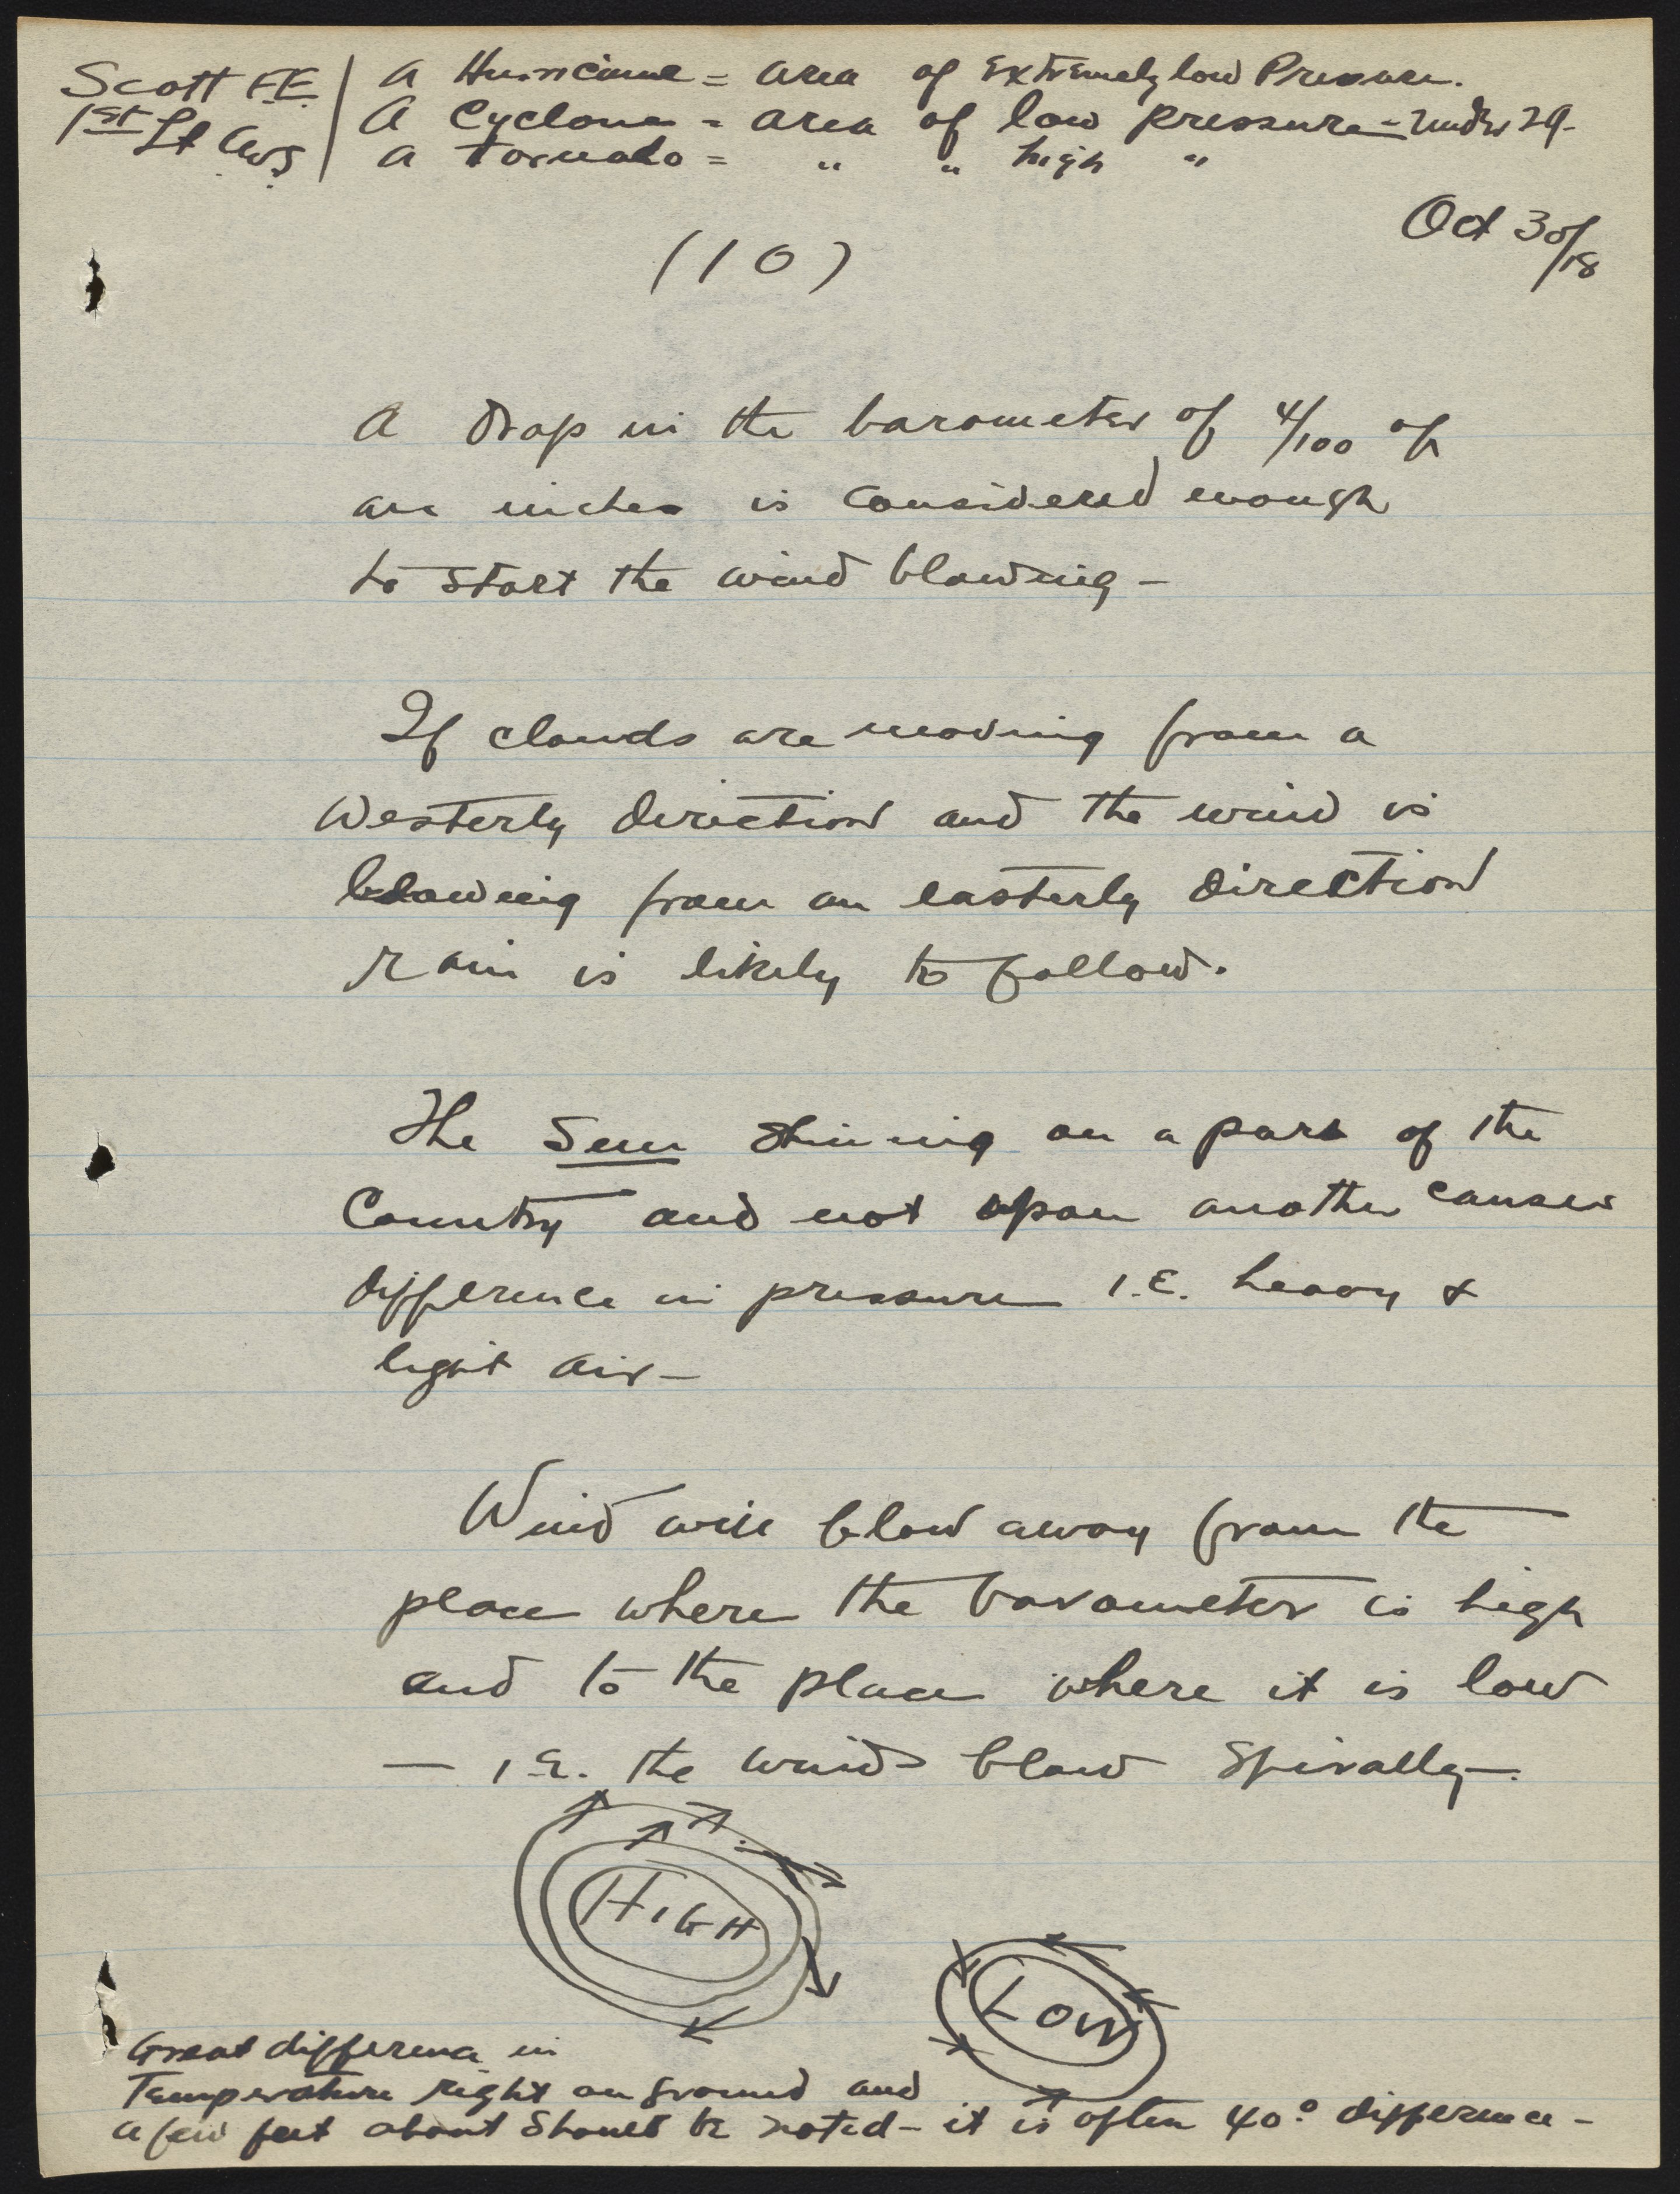 Scott F.E.
1st Lt AWS
A Hurricane = area of Extremely low Pressure.
A Cyclone = area of low pressure - under 29.
A Tornado = " " high "
Oct 30/18
(10)
A Drop in the barometer of 4/100 of
an inches is considered enough
to start the wind blowing -
If clouds are moving from a
Westerly direction and the wind is
blowing from an easterly direction
rain is likely to follow.
The Sun shining on a part of the
Country and not upon another causes
difference in pressure I.E. heavy &
light air -
Wind will blow away from the
place where the barometer is high
and to the place where it is low
- I.E. the winds blow Spirally -.
HIGH
LOW
Great difference in
Temperature right on ground and
a few feet about Should be noted - it is often 40° difference -